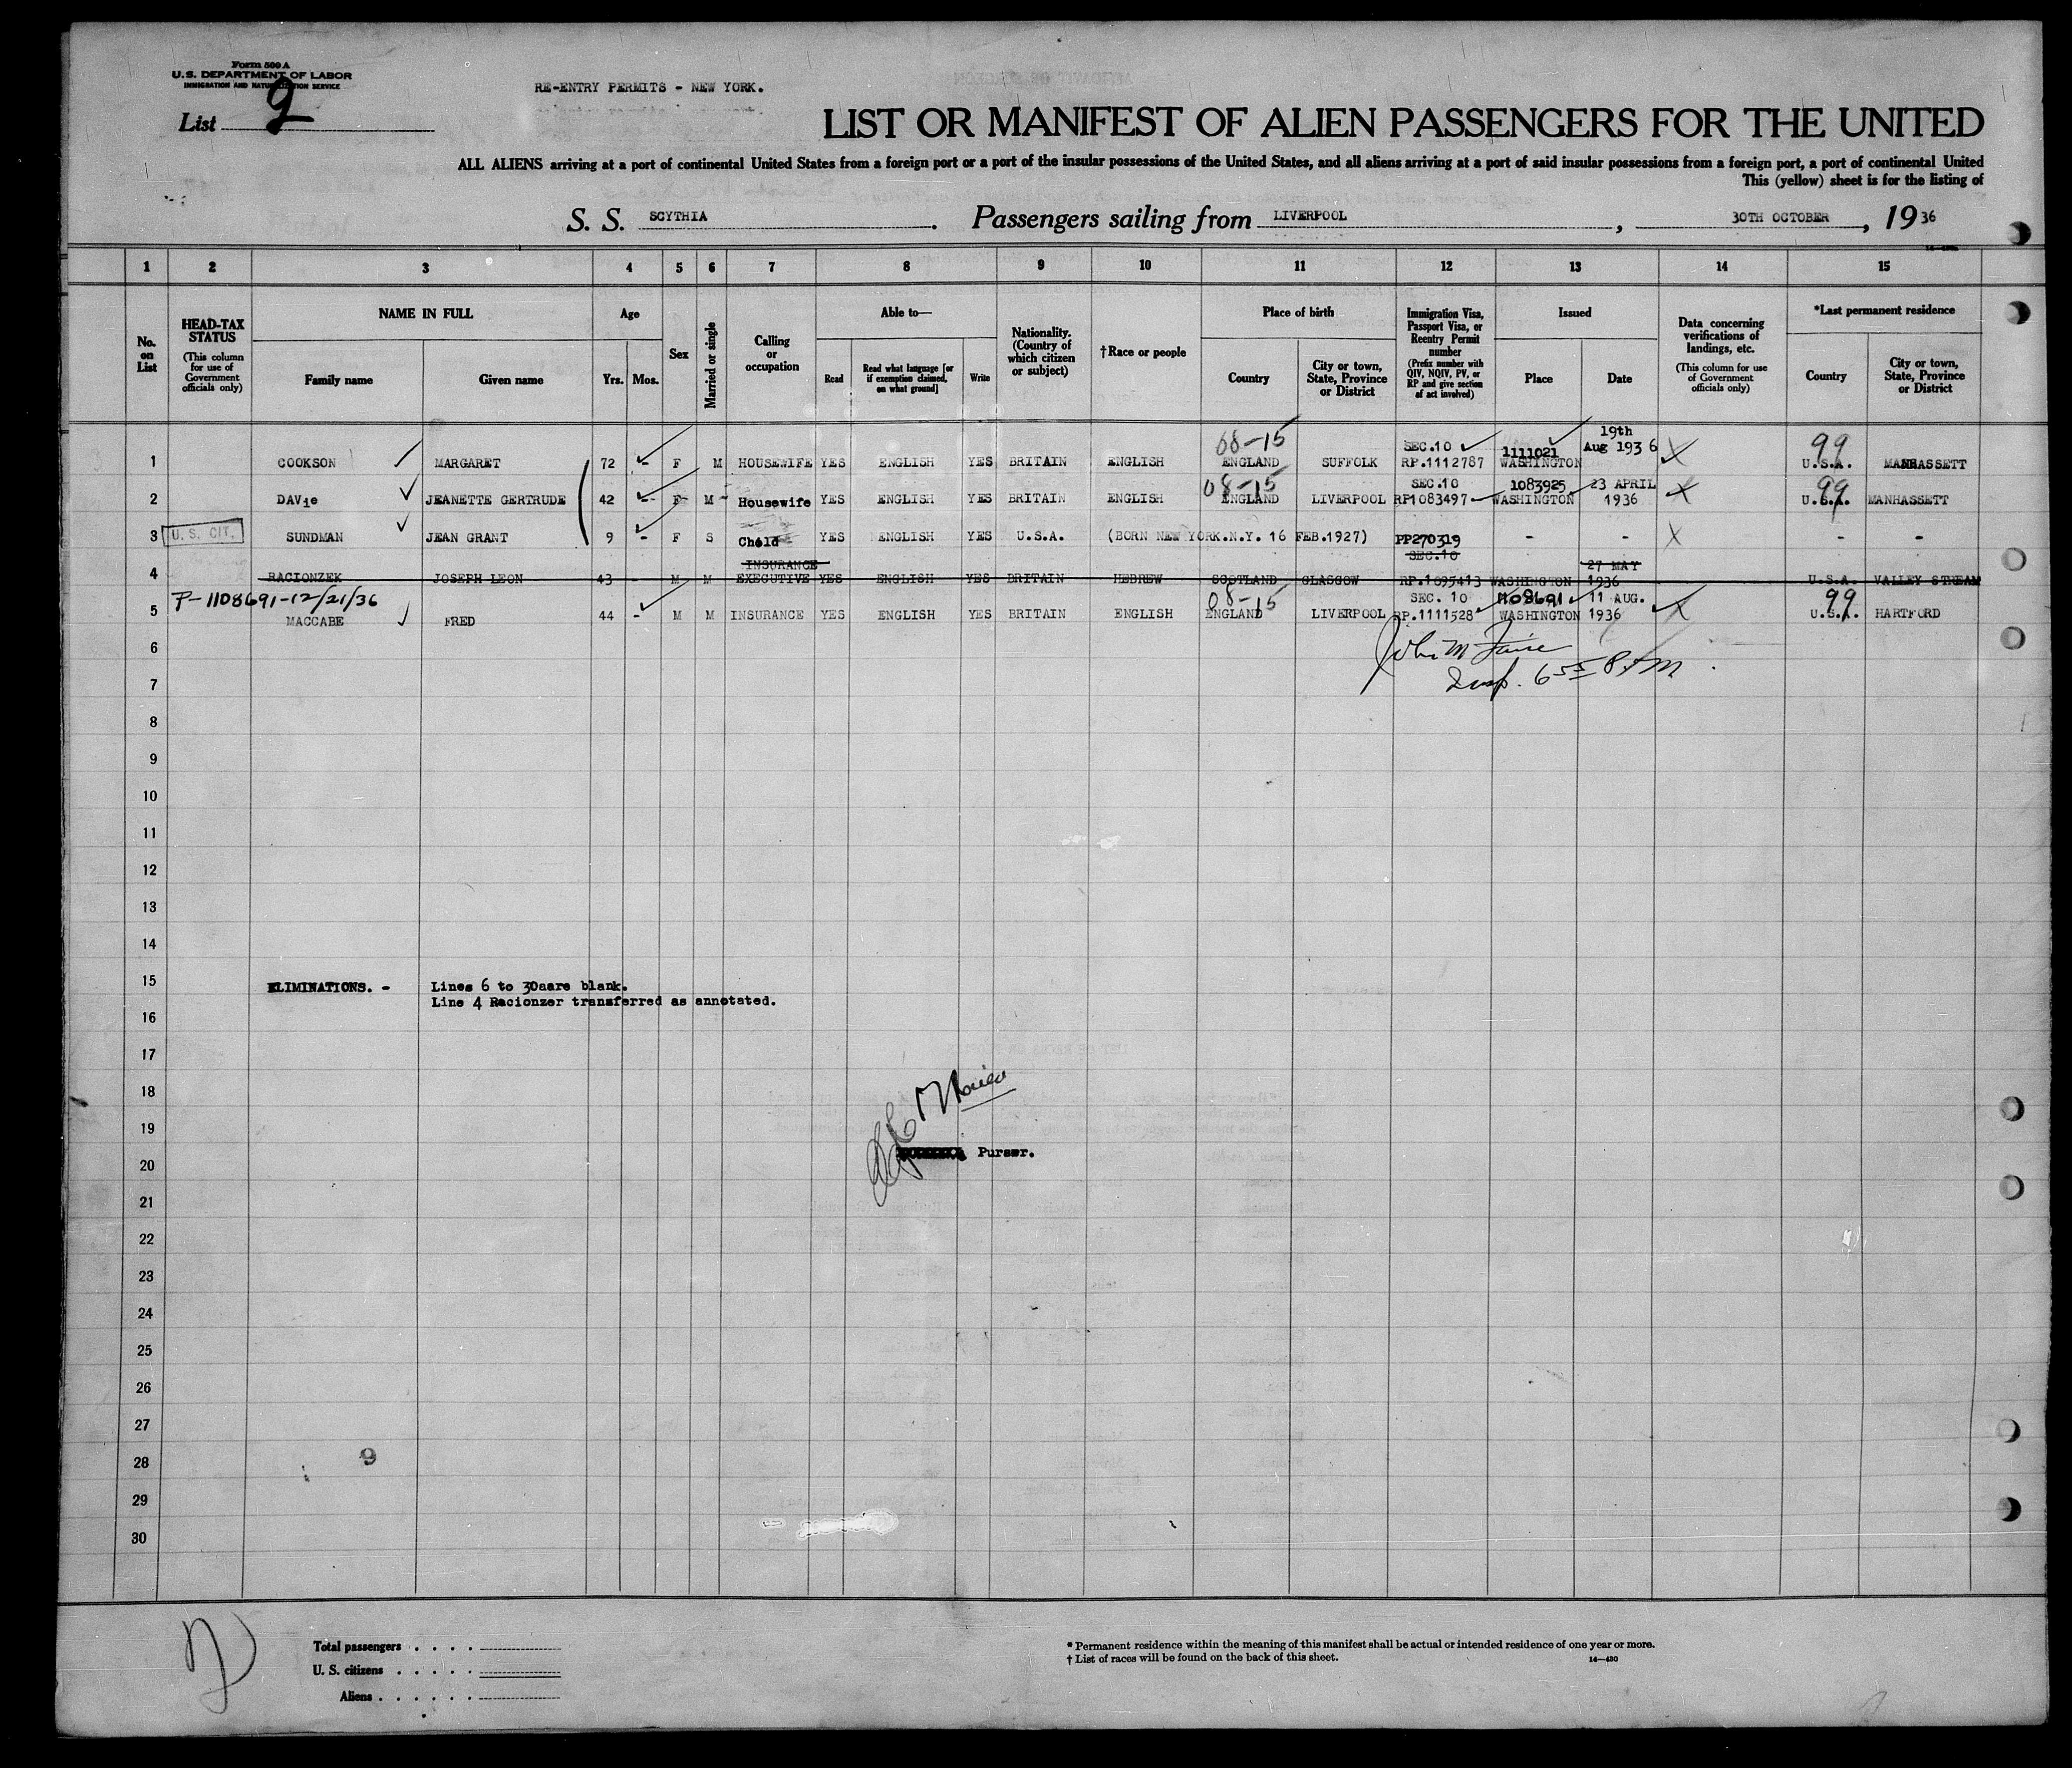 Form 500 A
U.S. DEPARTMENT OF LABOR
IMMIGRATION AND NATURALIZATION SERVICE
List 9
RE-ENTRY PERMITS - NEW YORK.
LIST OR MANIFEST OF ALIEN PASSENGERS FOR THE UNITED
ALL ALIENS arriving at a port of continental United States from a foreign port or a port of the insular possessions of the United States, and all aliens arriving at a port of said insular possessions from a foreign port, a port of continental United
This (yellow) sheet is for the listing of
S. S. SCYTHIA. Passengers sailing from LIVERPOOL, 30TH OCTOBER, 1936
1 2 3 4 5 6 7 8 9 10 11 12 13 14 15
No. on List
HEAD-TAX STATUS (This column for use of Government officials only)
NAME IN FULL
Family name Given name
Age
Yrs. Mos.
Sex
Married or single
Calling or occupation
Able to—
Read Read what language [or if exemption claimed, on what ground] Write
Nationality. (Country of which citizen or subject)
†Race or people
Place of birth
Country City or town, State, Province or District
Immigration Visa, Passport Visa, or Reentry Permit number (Prefix number with QIV, NQIV, PV, or RP and give section of act involved)
Issued
Place Date
Data concerning verifications of landings, etc. (This column for use of Government officials only)
*Last permanent residence
Country City or town, State, Province or District
08-15 SEC.10 1111021 19th Aug 1936 99
1 COOKSON MARGARET 72 - F M HOUSEWIFE YES ENGLISH YES BRITAIN ENGLISH ENGLAND SUFFOLK RP.1112787 WASHINGTON U.S.A. MANHASSETT
08-15 SEC.10 1083925 23 APRIL 99
2 DAVie JEANETTE GERTRUDE 42 - F M Housewife YES ENGLISH YES BRITAIN ENGLISH ENGLAND LIVERPOOL RP1083497 WASHINGTON 1936 U.S.A. MANHASSETT
3 U. S. CIT. SUNDMAN JEAN GRANT 9 - F S Child YES ENGLISH YES U.S.A. (BORN NEW YORK.N.Y. 16 FEB.1927) PP270319 - - - -
INSURANCE SEC.10 27 MAY
4 RACIONZEK JOSEPH LEON 43 - M M EXECUTIVE YES ENGLISH YES BRITAIN HEBREW SCOTLAND GLASGOW RP.1095413 WASHINGTON 1936 U.S.A. VALLEY STREAM
P-1108691-12/21/36 08-15 SEC. 10 1108691 11 AUG. 99
5 MACCABE FRED 44 - M M INSURANCE YES ENGLISH YES BRITAIN ENGLISH ENGLAND LIVERPOOL RP.1111528 WASHINGTON 1936 U.S.A. HARTFORD
6
7
8
9
10
11
12
13
14
15 ELIMINATIONS. - Lines 6 to 30aare blank.
Line 4 Racionzer transferred as annotated.
16
17
18
19
20 Purser.
21
22
23
24
25
26
27
28 9
29
30
Total passengers . . . .
U. S. citizens . . . . .
Aliens . . . . . .
* Permanent residence within the meaning of this manifest shall be actual or intended residence of one year or more.
† List of races will be found on the back of this sheet. 14—430